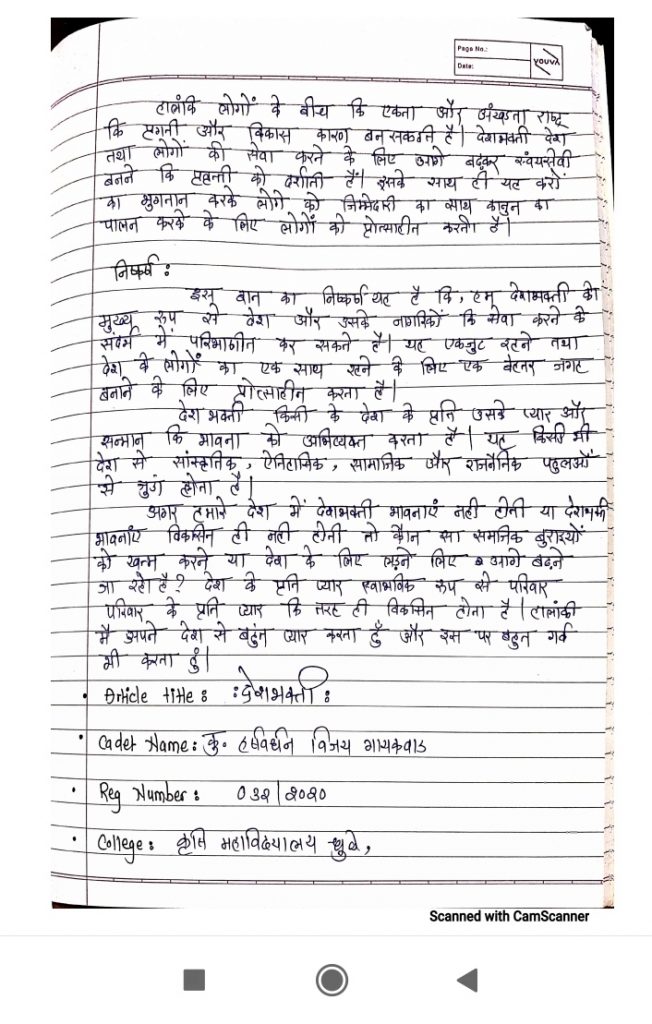 Page No.:
Date:
YOUVA
हालांकि लोगों के बीच कि एकता और अंखडता राष्ट्र
कि प्रगती और विकास कारण बन सकती है| देशभक्ती देश
तथा लोगों की सेवा करने के लिए आगे बढ़कर स्वंयसेवी
बनने कि प्रवृत्ती को दर्शाती हैं| इसके साथ ही यह करों
का भुगतान करके लोगो को जिम्मेदारी का साथ कानुन का
पालन करके के लिए लोगों को प्रोत्साहीत करती है|
निष्कर्ष :
इस बात का निष्कर्ष यह है कि, हम देशभक्ती को
मुख्य रूप से देश और उसके नागरिकों कि सेवा करने के
संदर्भ में परिभाषीत कर सकते है| यह एकजुट रहने तथा
देश के लोगों का एक साथ रहने के लिए एक बेहतर जगह
बनाने के लिए प्रोत्साहीत करता है|
देश भक्ती किसी के देश के प्रति उसके प्यार और
सन्मान कि भावना को अभिव्यक्त करता है| यह किसी भी
देश से सांस्कृतिक, ऐतिहासिक, सामाजिक और राजनैतिक पहुलओं
से जुडा होता है|
अगर हमारे देश में देशभक्ती भावनाएं नही होती या देशभक्ती
भावनाएं विकसित ही नही होती तो कौन सा समजिक बुराइयों
को खत्म करने या देश के लिए लड़ने लिए आगे बढ़ने
जा रहो है? देश के प्रति प्यार स्वाभाविक रूप से परिवार
परिवार के प्रति प्यार कि तरह ही विकसित होता है| हालांकी
मै अपने देश से बहुंत प्यार करता हुँ और इस पर बहुत गर्व
भी करता हुं|
• Article title : :देशभक्ती :
• Cadet Name: कु. हर्षवर्धन विजय गायकवाड
• Reg Number : 032/2020
• College: कृषि महाविद्यालय धुळे,
Scanned with CamScanner